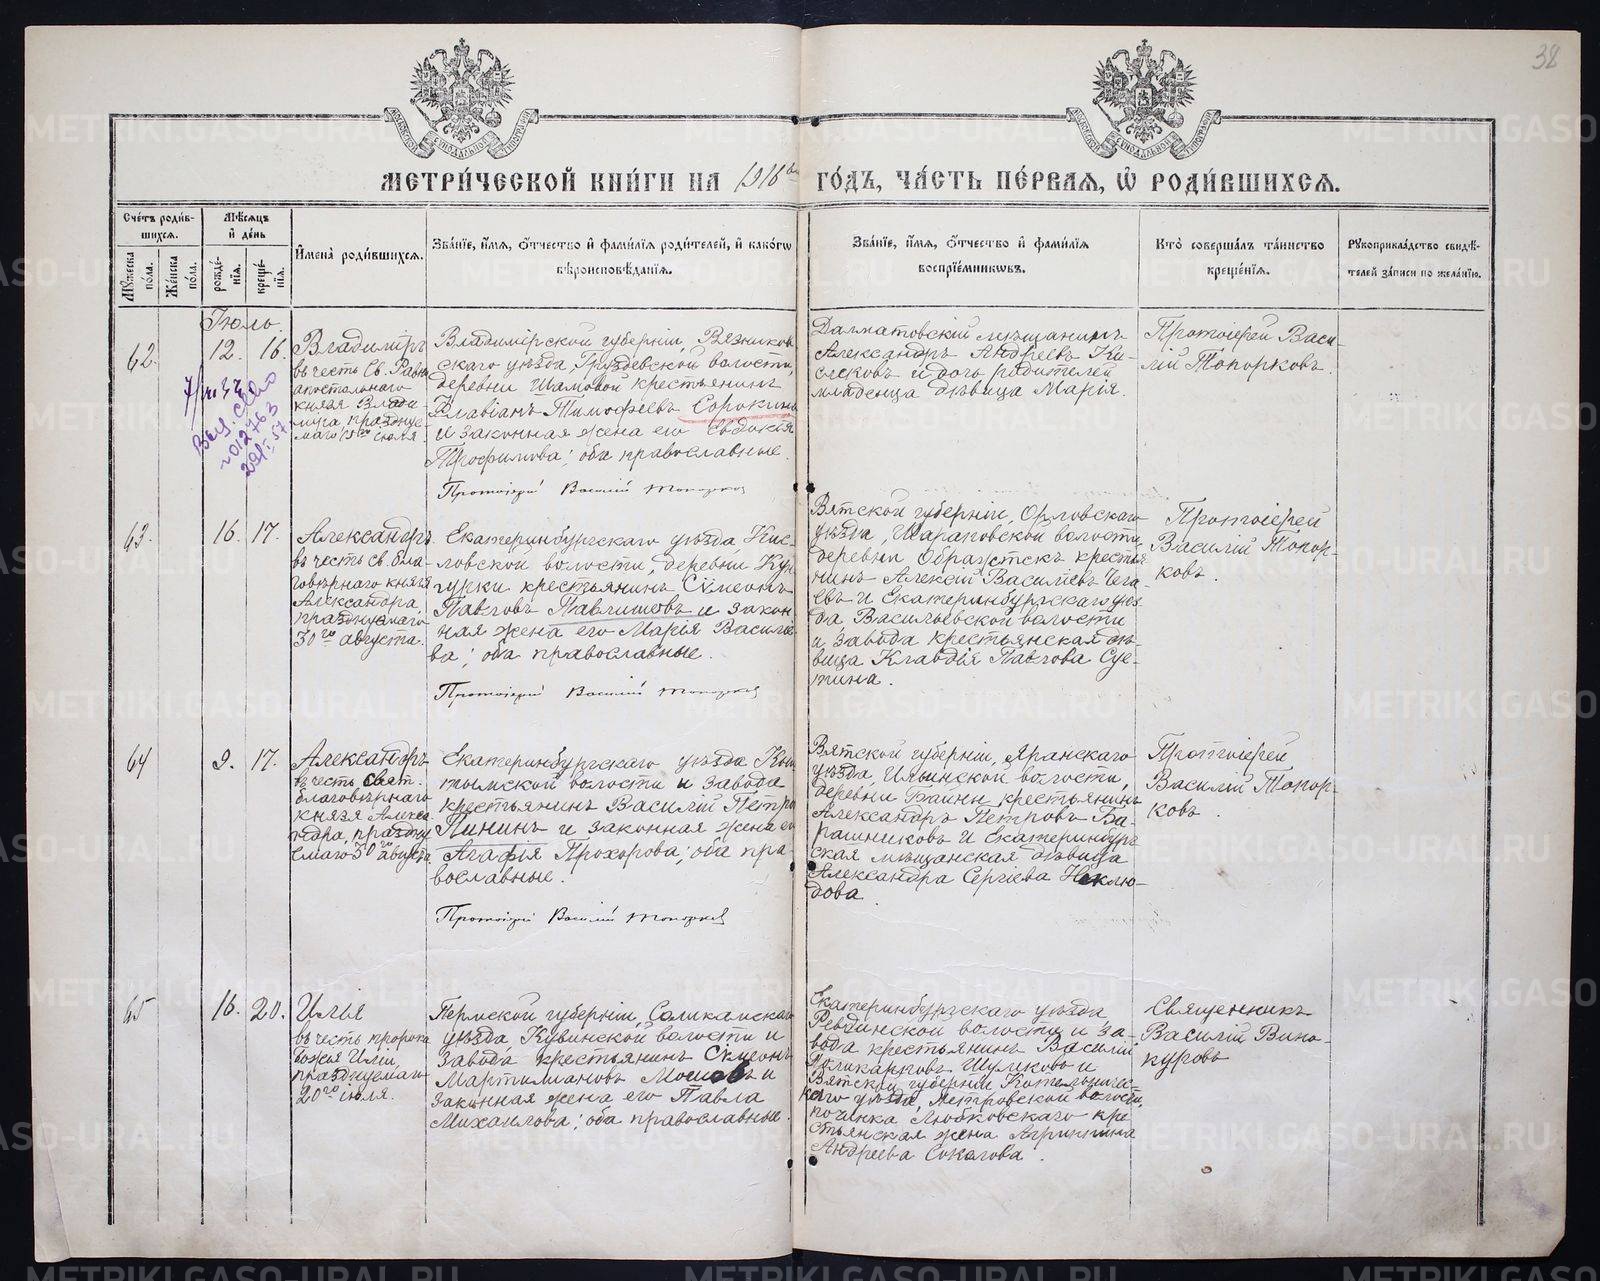 38
МЕТРИ́ЧЕСКОЙ КНИ́ГИ НА 1916й ГО́ДЪ, ЧА́СТЬ ПЕ́РВАЯ, Ѡ РОДИ́ВШИХСЯ.
Сче́тъ роди́вшихся.
Му́жеска по́ла.
Же́нска по́ла.
Мѣ́сяцъ и҆ де́нь
рожде́нїя.
креще́нїя.
И҆мена̀ роди́вшихся.
Зва́нїе, и҆́мя, ѻ҆́тчество и҆ фами́лїя роди́телей, и҆ како́гѡ
вѣроисповѣ́данїя.
Зва́нїе, и҆́мя, ѻ҆́тчество и҆ фами́лїя
воспрїе́мникѡвъ.
Кто̀ соверша́лъ та́инство
креще́нїя.
Рꙋкоприкла́дство свидѣ́-
телей за́писи по жела́нїю.
Іюль.
62.
12. 16.
Владиміръ
въ честь Св. Равно
апостольнаго
князя Влади-
мира, празднуе-
маго 15го іюля
Владимірской губерніи, Вязников-
скаго уѣзда, Груздевской волости,
деревни Шамовой крестьянинъ
Флавіанъ Тимофеевъ Сорокинъ
и законная жена его Евдокія
Трофимова; оба православные.
Протоіерей Василій Топорков
Далматовскій мѣщанинъ
Александръ Андреевъ Ки-
селковъ и дочь родителей
младенца дѣвица Марія.
Протоіерей Васи-
лій Топорковъ.
№012763
63.
16. 17.
Александръ
въ честь св. бла-
говѣрнаго князя
Александра,
празднуемаго
30го августа.
Екатеринбургскаго уѣзда Кис-
ловской волости, деревни Кун-
гурки крестьянинъ Сѵмеонъ
Павловъ Павлишовъ и закон-
ная жена его Марія Василіе-
ва; оба православные.
Протоіерей Василій Топорков
Вятской губерніи, Орловскаго
уѣзда, Шараповской волости,
деревни крестья-
нинъ Алексій Василіевъ Чега-
евъ и Екатеринбургскаго уѣз-
да Васильевской волости
и завода крестьянская дѣ-
вица Клавдія Павлова Сус-
тина.
Протоіерей
Василій Топор-
ковъ.
64
9. 17.
Александръ
въ честь Свят.
благовѣрнаго
князя Алекса-
ндра, праздну-
емаго 30го августа.
Екатеринбургскаго уѣзда Кыш-
тымской волости и завода
крестьянинъ Василій Петровъ
Пининъ и законная жена его
Агафія Прохорова; оба пра-
вославные.
Протоіерей Василій Топорков
Вятской губерніи, Яранскаго
уѣзда, Ильинской волости,
деревни крестьянинъ
Александръ Петровъ Ба-
рашниковъ и Екатеринбург-
ская мѣщанская дѣвица
Александра Сергіева Неклю-
дова.
Протоіерей
Василій Топор-
ковъ.
65
16. 20.
Илья
въ честь пророка
Божія Иліи,
празднуемаго
20го іюля.
Пермской губерніи, Соликамскаго
уѣзда Кувинской волости и
завода крестьянинъ Сѵмеонъ
Мартиміановъ Мошевъ и
законная жена его Павла
Михаилова; оба православные.
Екатеринбургскаго уѣзда
Ревдинской волости и за-
вода крестьянинъ Василій
Поликарповъ Шуликовъ и
Вятской губерніи Котельничес-
каго уѣзда, Петровской волости,
починка Любковскаго кре-
стьянская жена Агриппина
Андреева Соколова.
Священникъ
Василій Вино-
куровъ